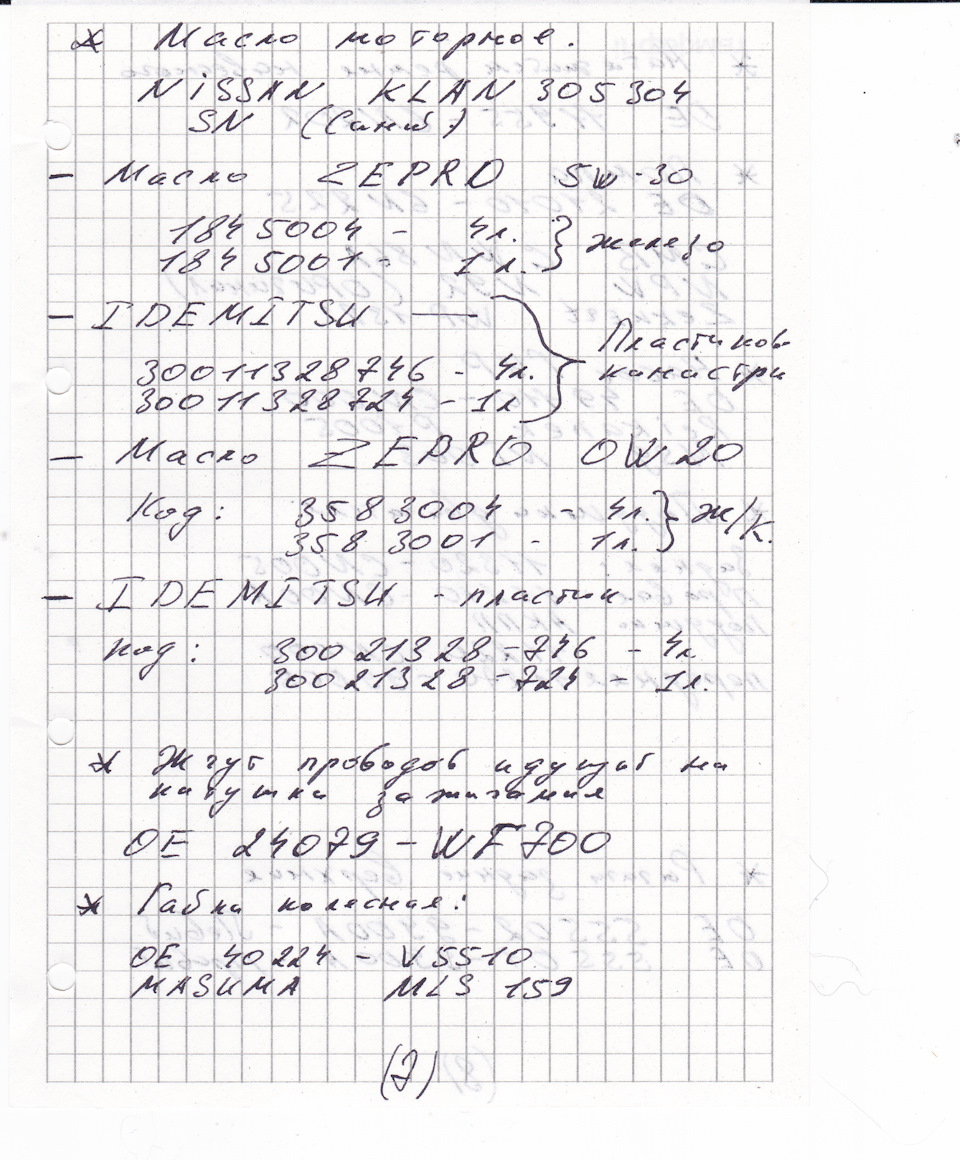 * Масло моторное.
NiSSAN KLAN 305304
SN (Синий)
- Масло ZEPRO 5W-30
1845004 - 4л. } железо
1845001 - 1л.
- IDEMITSU —
Пластиков
канистри
30011328746 - 4л.
30011328724 - 1л
- Масло ZEPRO 0W20
Код: 3583004 - 4л. } Ж/К.
3583001 - 1л.
- IDEMITSU - пластик
Код: 30021328-746 - 4л.
30021328-724 - 1л.
* Жгут проводов идущий на
катушки зажигания
OE 24079-WF700
* Гайка колесная:
OE 40224 - V5510
MASUMA MLS 159
(7)